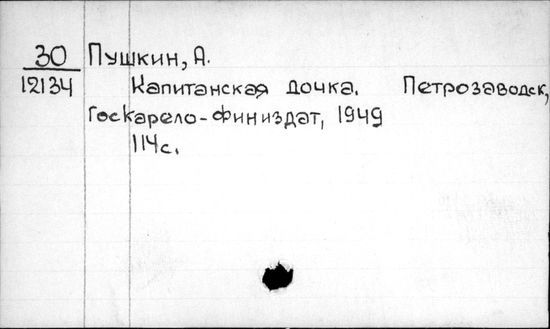 30 Пушкин, А.
12134 Капитанская дочка. Петрозаводск,
Госкарело-финиздат, 1949
114с.